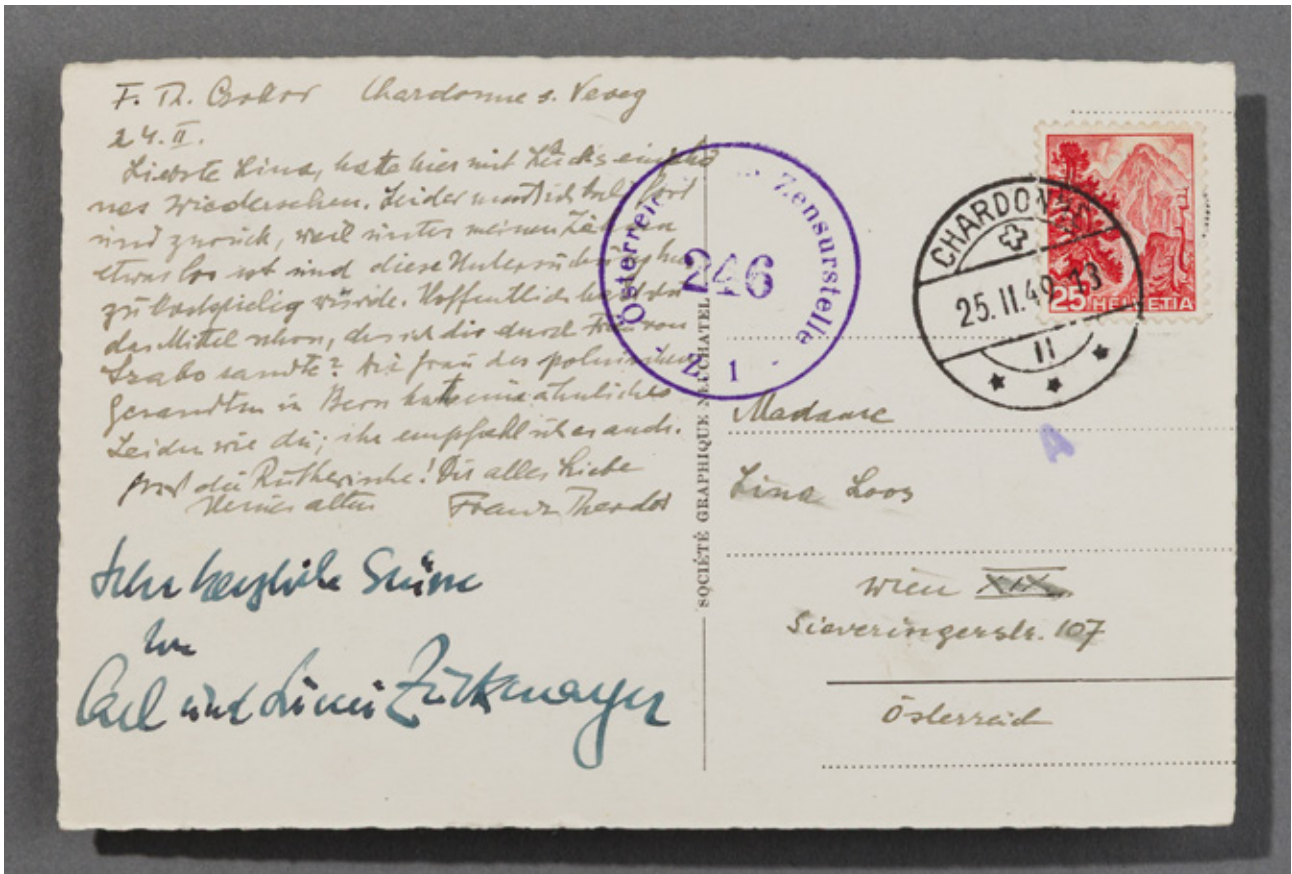 F. Th. Csokor Chardonne s. Vevey
24. II.
Liebste Lina, hatte hier mit Zucks ein schö
nes Wiedersehen. Leider muss ich bald fort
und zurück, weil unter meinen Zähnen
etwas los ist und diese Untersuchung hier
zu kostspielig würde. Hoffentlich hast du
das Mittel schon, das ich dir durch Frau von
Szabo sandte? Die Frau des polnischen
Gesandten in Bern hatte ein ähnliches
Leiden wie du; ihr empfahl ich es auch.
die Dir alles Liebe
Deines alten Franz Theodor
Sehr herzliche Grüsse
von
Carl und Zuckmayer
Österreich Zensurstelle
246
Z 1
SOCIÉTÉ GRAPHIQUE NEUCHATEL
CHARDONNE
25. II. 49
II
25 HELVETIA
A
Madame
Lina Loos
Wien XIX
Sieveringerstr. 107
Österreich